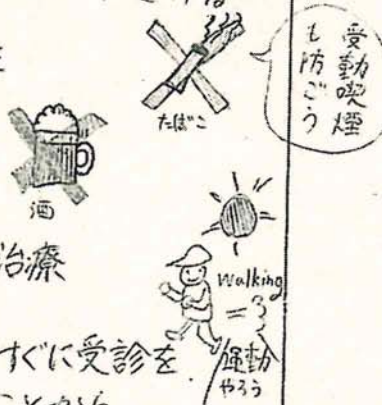 受動喫煙
も防ごう
たばこ
酒
治療
Walking
すぐに受診を
運動
やろう